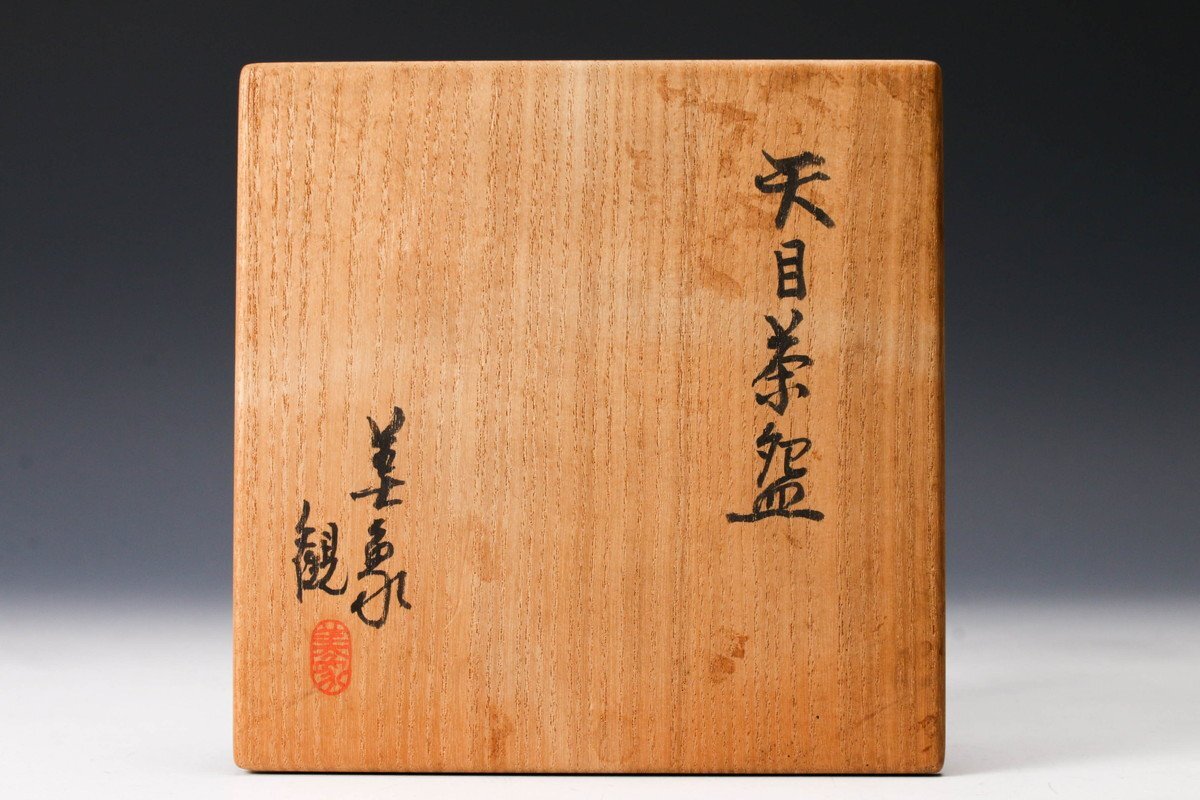 天目茶盌
美象
観